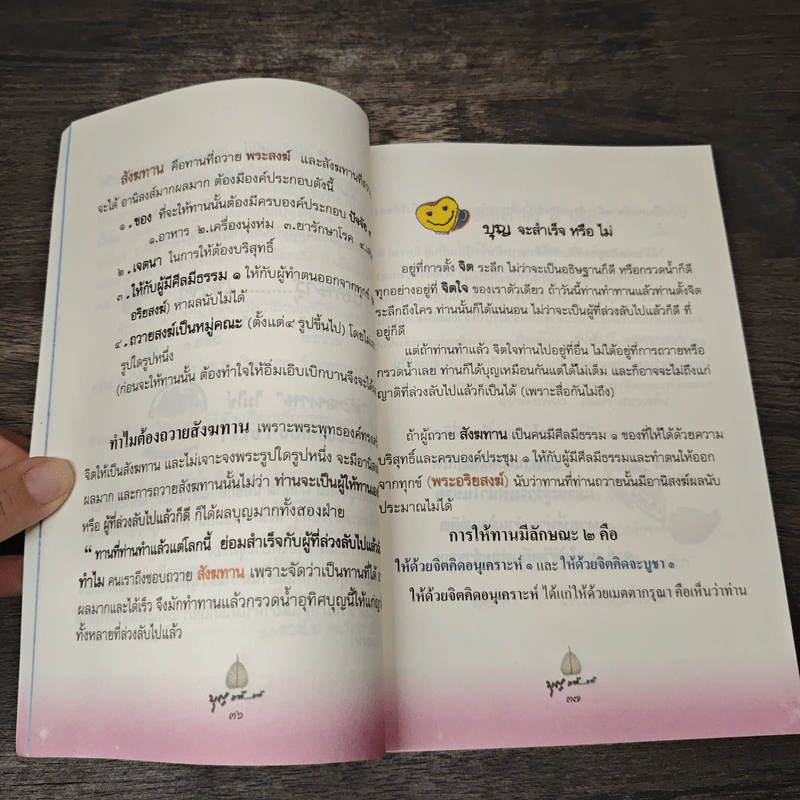 สังฆทาน คือทานที่ถวาย พระสงฆ์ และสังฆทานที่
จะได้ อานิสงส์มากผลมาก ต้องมีองค์ประกอบดังนี้
๑.ของ ที่จะให้ทานนั้นต้องมีครบองค์ประกอบ ปัจจัย
๑.อาหาร ๒.เครื่องนุ่งห่ม ๓.ยารักษาโรค
๒.เจตนา ในการให้ต้องบริสุทธิ์
๓.ให้กับผู้มีศีลมีธรรม ๑ ให้กับผู้ทำตนออกจากทุกข์
อริยสงฆ์) หาผลนับไม่ได้
๔.ถวายสงฆ์เป็นหมู่คณะ (ตั้งแต่๔ รูปขึ้นไป)
รูปใดรูปหนึ่ง
(ก่อนจะให้ทานนั้น ต้องทำใจให้อิ่มเอิบเบิกบานจึงจะได้
ทำไมต้องถวายสังฆทาน เพราะพระพุทธองค์
จิตให้เป็นสังฆทาน และไม่เจาะจงพระรูปใดรูปหนึ่ง จะมี
ผลมาก และการถวายสังฆทานนั้นไม่ว่า ท่านจะเป็นผู้ให้ทาน
หรือ ผู้ที่ล่วงลับไปแล้วก็ดี ก็ได้ผลบุญมากทั้งสองฝ่าย
“ ทานที่ท่านทำแล้วแต่โลกนี้ ย่อมสำเร็จกับผู้ที่ล่วงลับไปแล้ว
ทำไม คนเราถึงชอบถวาย สังฆทาน เพราะจัดว่าเป็นทานที่ได้
ผลมากและได้เร็ว จึงมักทำทานแล้วกรวดน้ำอุทิศบุญนี้ให้แก่
ทั้งหลายที่ล่วงลับไปแล้ว
๓๖
บุญ จะสำเร็จ หรือ ไม่
อยู่ที่การตั้ง จิต ระลึก ไม่ว่าจะเป็นอธิษฐานก็ดี หรือกรวดน้ำก็ดี
ทุกอย่างอยู่ที่ จิตใจ ของเราตัวเดียว ถ้าวันนี้ท่านทำทานแล้วท่านตั้งจิต
ระลึกถึงใคร ท่านนั้นก็ได้แน่นอน ไม่ว่าจะเป็นผู้ที่ล่วงลับไปแล้วก็ดี ที่
อยู่ก็ดี
แต่ถ้าท่านทำแล้ว จิตใจท่านไปอยู่ที่อื่น ไม่ได้อยู่ที่การถวายหรือ
กรวดน้ำเลย ท่านก็ได้บุญเหมือนกันแต่ได้ไม่เต็ม และก็อาจจะไม่ถึงแก่
ญาติที่ล่วงลับไปแล้วก็เป็นได้ (เพราะสื่อกันไม่ถึง)
ถ้าผู้ถวาย สังฆทาน เป็นคนมีศีลมีธรรม ๑ ของที่ให้ได้ด้วยความ
บริสุทธิ์และครบองค์ประชุม ๑ ให้กับผู้มีศีลมีธรรมและทำตนให้ออก
จากทุกข์ (พระอริยสงฆ์) นับว่าทานที่ท่านถวายนั้นมีอานิสงฆ์ผลนับ
ประมาณไม่ได้
การให้ทานมีลักษณะ ๒ คือ
ให้ด้วยจิตคิดอนุเคราะห์ ๑ และ ให้ด้วยจิตคิดจะบูชา ๑
ให้ด้วยจิตคิดอนุเคราะห์ ได้แก่ให้ด้วยเมตตากรุณา คือเห็นว่าท่าน
๓๗